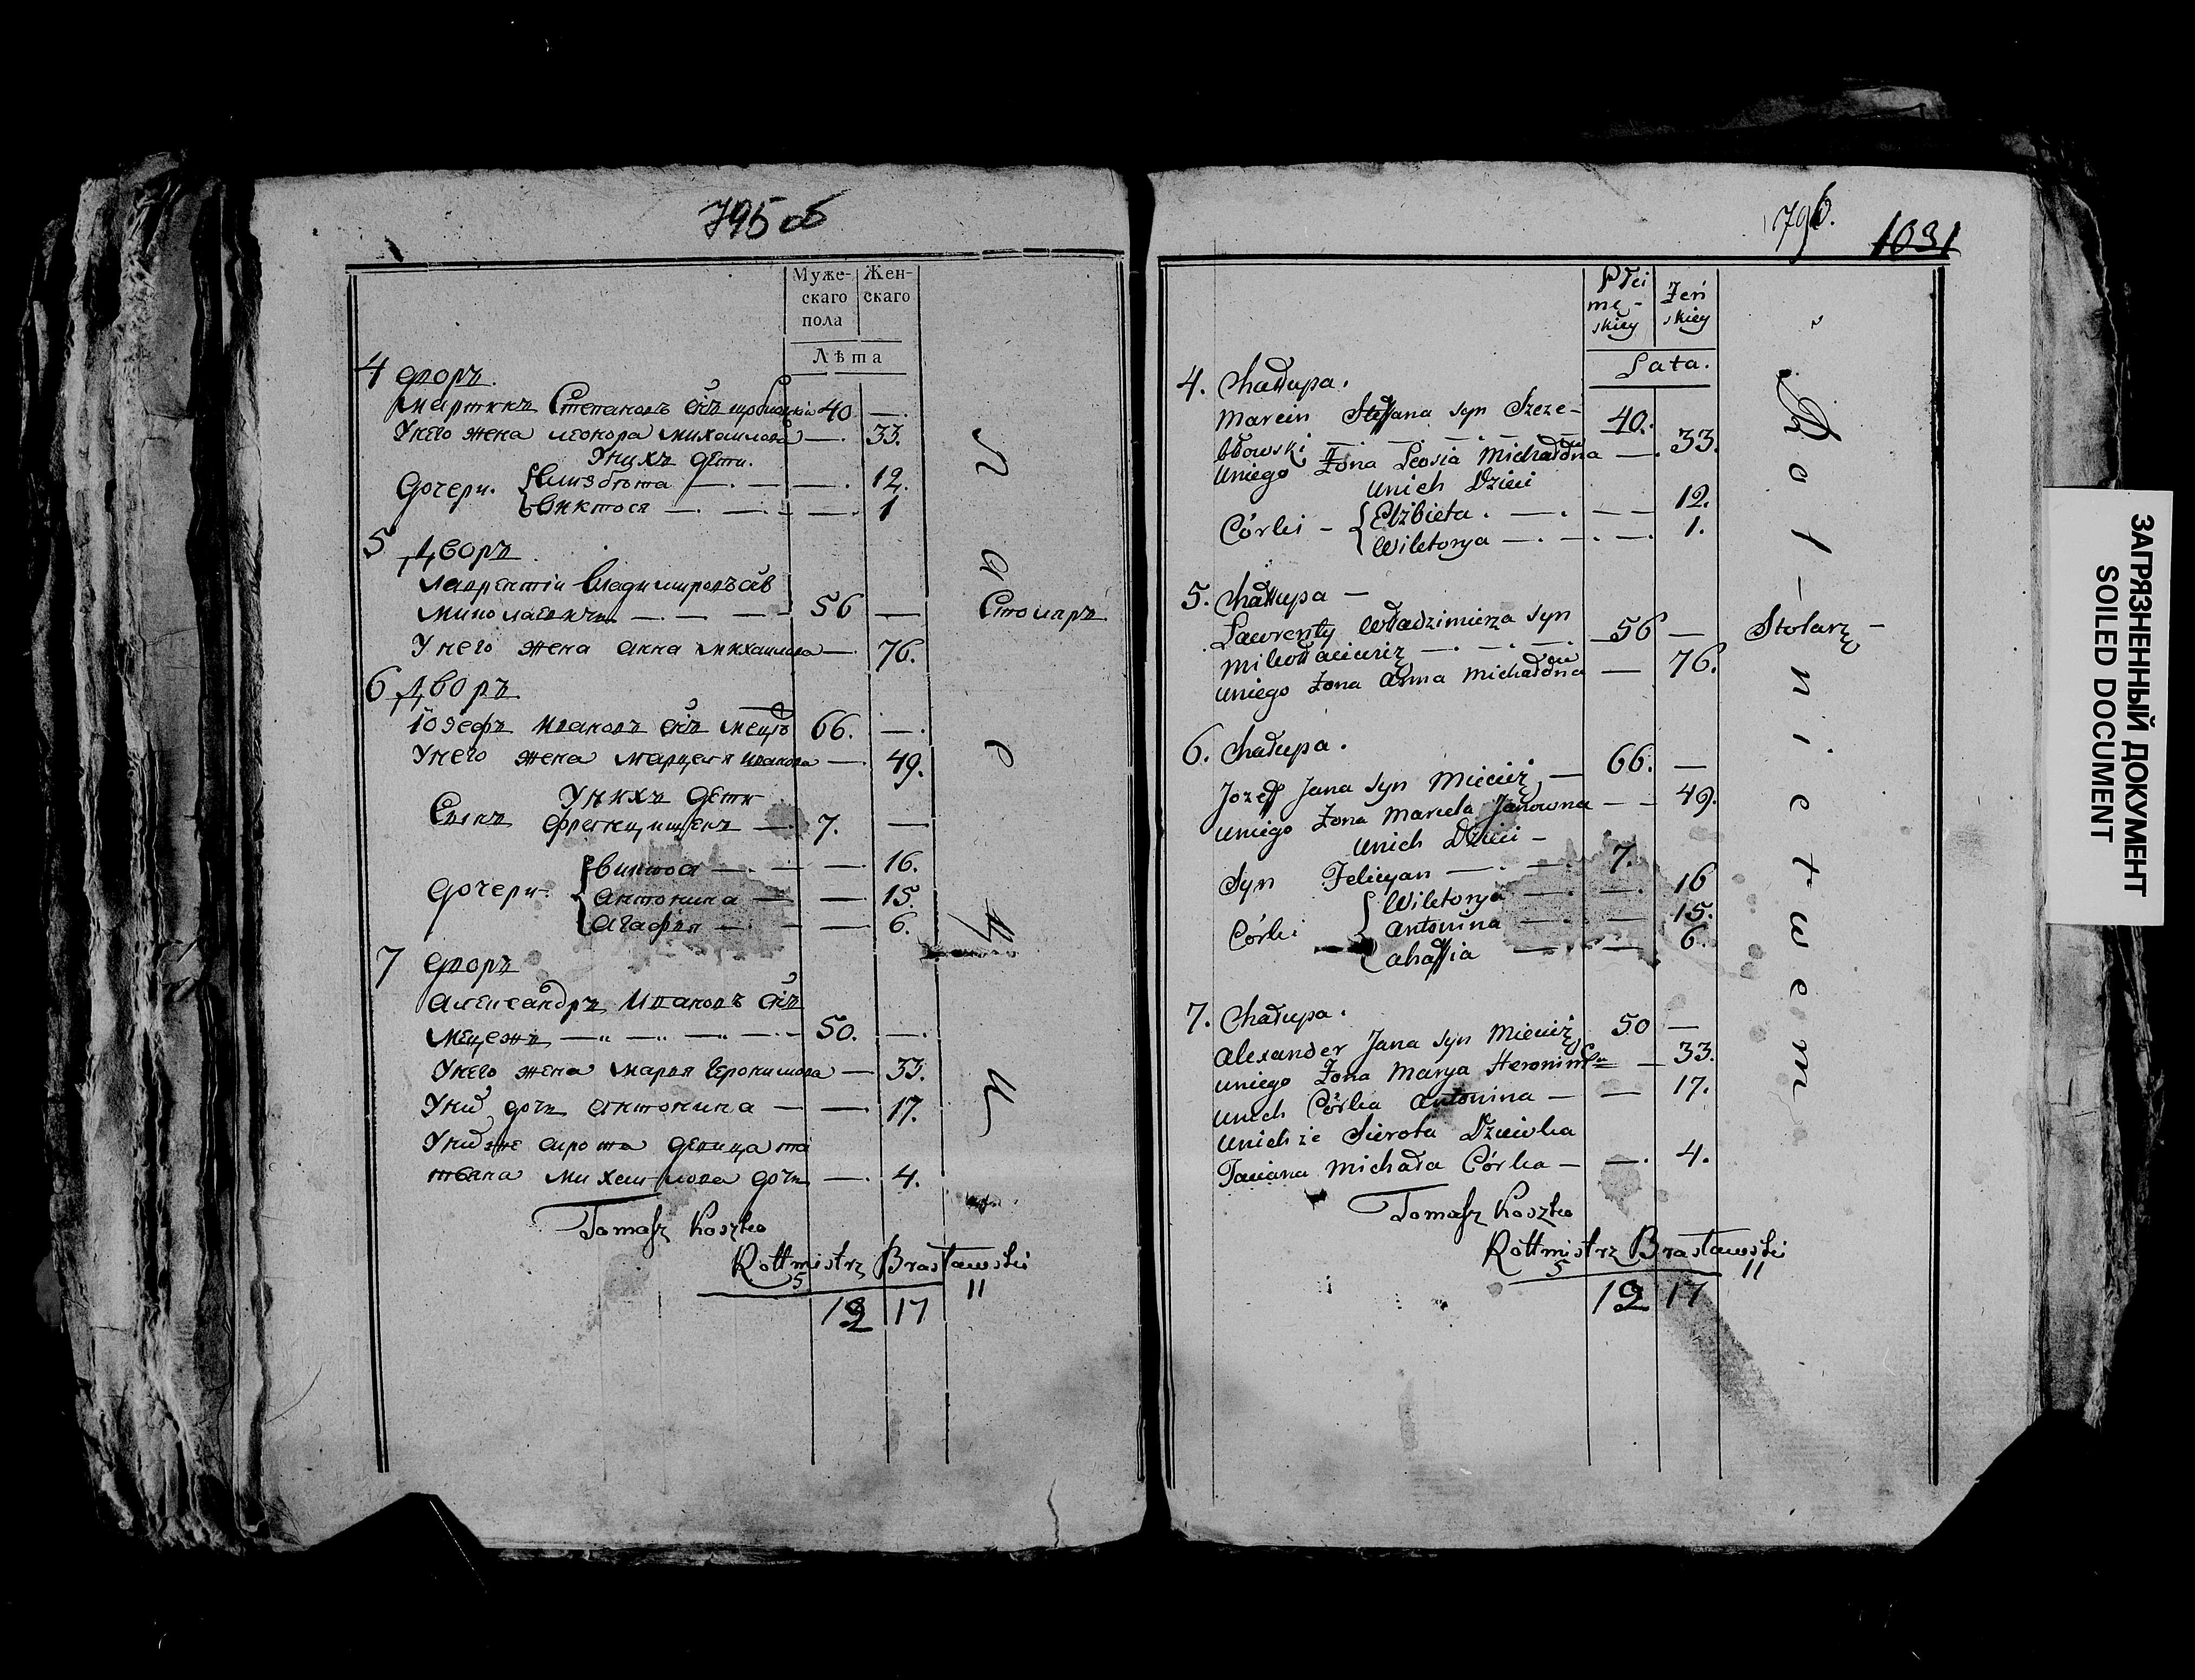 795 об
Муже- Жен-
скаго скаго
пола
Лѣта
4 дворъ.
Мартинъ Степановъ снъ 40 —.
У него жена Леонора Михайлова —. 33.
У нихъ дети.
Дочери. { Елизбѣта —. — —. 12.
{ Виктося —. —. — —. 1
5 Дворъ
Лаврентій Владимировъ снъ
Миколаевичъ —. —. — — 56 — Столяръ
У него жена Анна Михайлова —. 76.
6 Дворъ
Іозефъ Ивановъ снъ 66. —.
У него жена Марцеля Иванова —. 49.
У нихъ дети
Сынъ — 7. —
Дочери. { Виктося —. — —. 16.
{ Антонина — — 15.
{ Агафія —. — — 6.
7 Дворъ
Александръ Ивановъ снъ
Мецежъ —„ — —„ — —.— 50. —.
У него жена Марья Героимова — 33.
У них дочь Антонина — —. 17.
У них же сирота девица Та
тьяна Михайлова дочь —. 4.
Tomasz Koszko
Rottmistrz Brasławski
5 11
12 17
1796. 1031
Płci Żeń
mę- skiey
skiey
Lata.
4. Chałupa.
Marcin Steffana syn Szcze- 40.
błowski — — — — —. 33.
Uniego Żona Leosia Michałowna
Unich Dzieci
Córki - { Elżbieta. —. — — 12.
{ Wiktorya —. —. —. 1.
5. Chałupa —
Lawrenty Władzimierza syn
Mikołaiewicz —. —. —. 56 — Stolarz —
Uniego Żona Anna Michałowna — 76.
6. Chałupa.
Jozeff Jana syn Miecież — 66. —
Uniego Żona Marcela Janowna — — 49.
Unich Dzieci —
Syn Felicyan —. —. 7.
Córki { Wiktorya —. —. 16
{ Antonina —. — 15.
{ Ahaffia — — 6.
7. Chałupa.
Alexander Jana syn Miecież 50 —
Uniego Żona Marya Heronim — 33.
Unich Córka Antonina — — 17.
Unich że Sierota Dziewka
Taciana Michała Córka — —. 4.
Rolnictwem
Tomasz Koszko
Rottmistrz Brasławski
5 11
12 17
ЗАГРЯЗНЕННЫЙ ДОКУМЕНТ
SOILED DOCUMENT